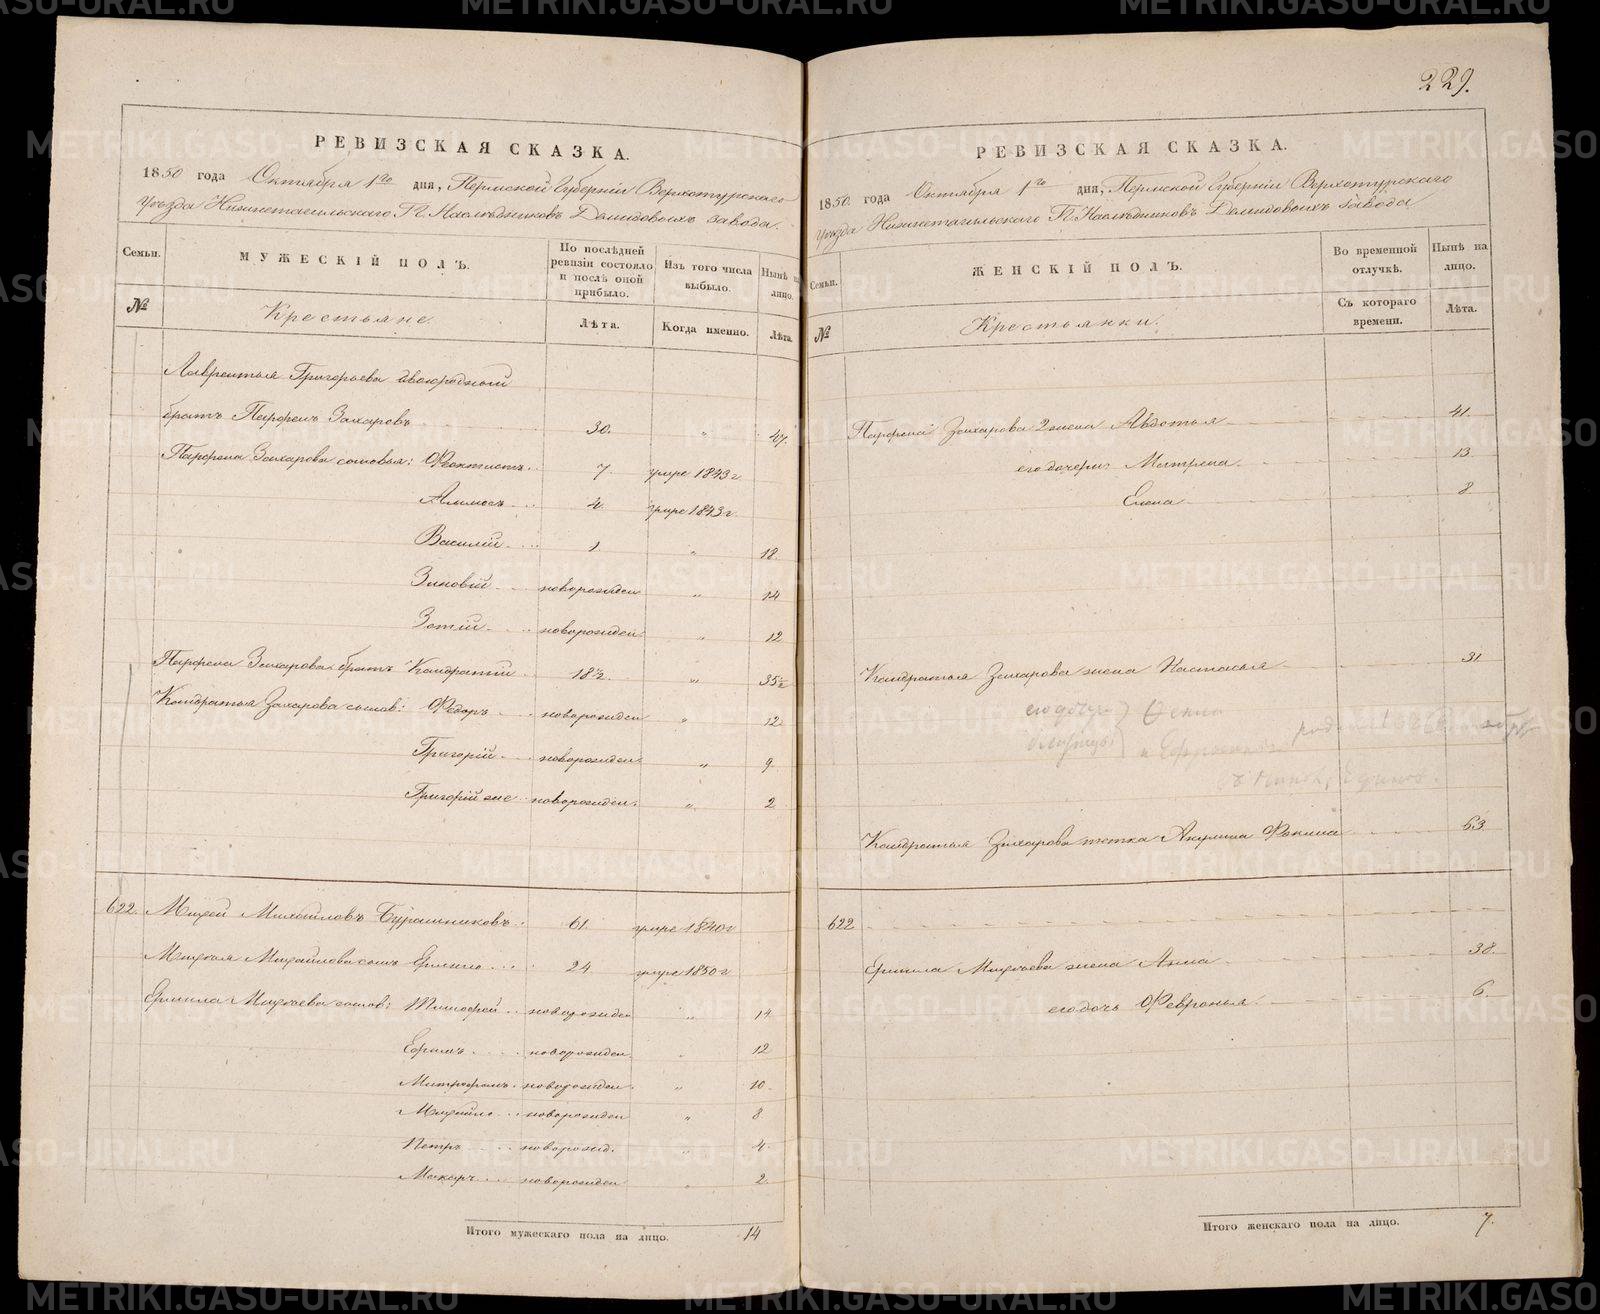 229.
РЕВИЗСКАЯ СКАЗКА.
1850 года Октября 1го дня, Пермской Губерніи Верхотурскаго
уѣзда Нижнетагильскаго Гг. Наслѣдниковъ Демидовыхъ завода.
Семьи.
№
МУЖЕСКІЙ ПОЛЪ.
Крестьяне.
По послѣдней ревизіи состояло и послѣ оной прибыло.
Лѣта.
Изъ того числа выбыло.
Когда именно.
Нынѣ на лицо.
Лѣта.
Лаврентья Григорьева двоюродный
братъ Парфенъ Захаровъ 30. " 47.
Парфена Захарова сыновья: Феоктистъ 7 умре 1843 г
4 умре 1843 г
Василій 1 " 18
Зиновій новорожден " 14
Зотій новорожден. " 12
Парфена Захарова братъ Кондратій 18½ " 35½
Кондратья Захарова сынов: Федоръ новорожден " 12
Григорій новорожден. " 9.
Григорій же новорожден. " 2
622. Михей Михайловъ Бурашниковъ 61. умре 1840 г
Михея Михайлова сынъ Ермило 24 умре 1850 г
Ермила Михеева сынов: Тимофей новорожден " 14
Ефимъ новорожден. " 12
Митрофанъ новорожден. " 10.
Михайло новорожден " 8
Петръ новорожд. " 4.
Макаръ новорожден " 2.
Итого мужескаго пола на лицо. 14
РЕВИЗСКАЯ СКАЗКА.
1850 года Октября 1го дня, Пермской Губерніи Верхотурскаго
уѣзда Нижнетагильскаго Гг. Наслѣдниковъ Демидовыхъ завода
Семьи.
№
ЖЕНСКІЙ ПОЛЪ.
Крестьянки.
Во временной отлучкѣ.
Съ котораго времени.
Нынѣ на лицо.
Лѣта.
Парфена Захарова 2 жена Авдотья 41.
его дочери: Матрена. 13
Елена 8
Кондратья Захарова жена Настасья 31
Кондратья Захарова тетка Акулина Фокина 63
622
Ермила Михеева жена Анна 38.
его дочь Февронья. 6.
Итого женскаго пола на лицо. 7.
METRIKI.GASO-URAL.RU